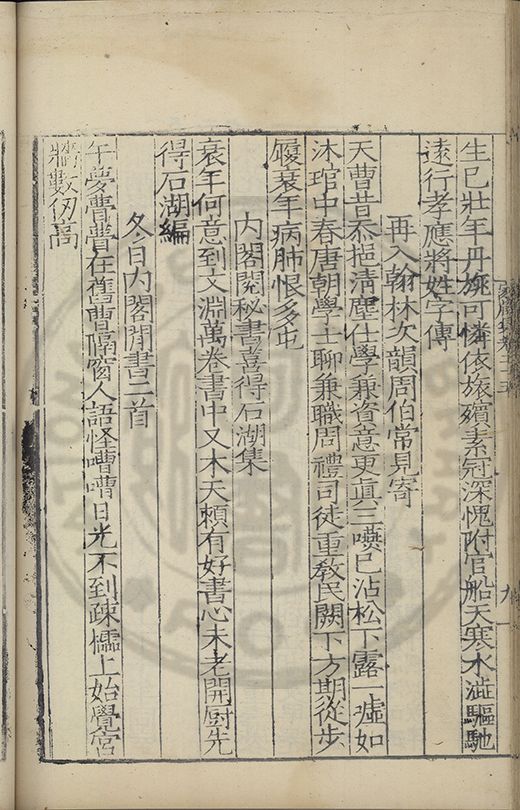 生已壯年丹旐可憐依旅殯素冠深愧附官船天寒水澁驅馳
遠行孝應將姓字傳
再入翰林次韻周伯常見寄
天曹昔忝挹清塵仕學兼資意更眞三嚥已沾松下露一墟如
沐琯中春唐朝學士聊兼職周禮司徒重敎民闕下方期從步
履衰年病肺恨多屯
內閣閱秘書喜得石湖集
衰年何意到文淵萬卷書中又木天頼有好書心未老開厨先
得石湖編
冬日內閣閒書二首
午夢瞢瞢在舊曹隔窗人語怪嘈嘈日光不到疎櫺上始覺宮
牆數仞高